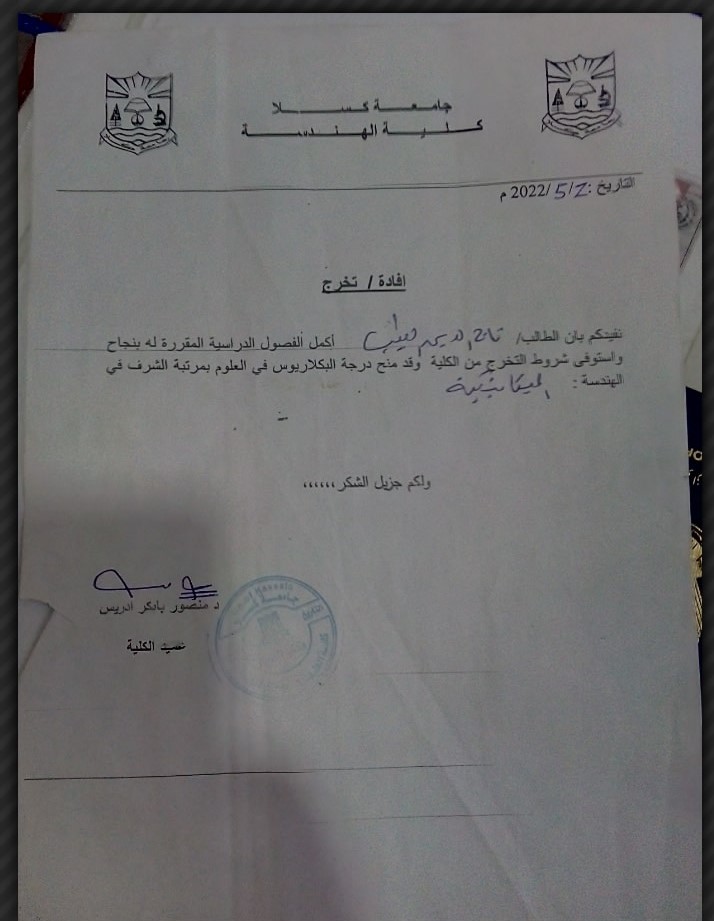 جامعـــة كســـــلا
كـلـيـــة الهـنـدســـة
التاريخ :2/5/2022 م
افادة / تخرج
نفيدكم بان الطالب/ تاج الدين أكمل الفصول الدراسية المقررة له بنجاح
واستوفى شروط التخرج من الكلية وقد منح درجة البكلاريوس في العلوم بمرتبة الشرف في
الهندسة : الميكانيكية
ولكم جزيل الشكر ،،،،،،
د منصور بابكر ادريس
عميد الكلية